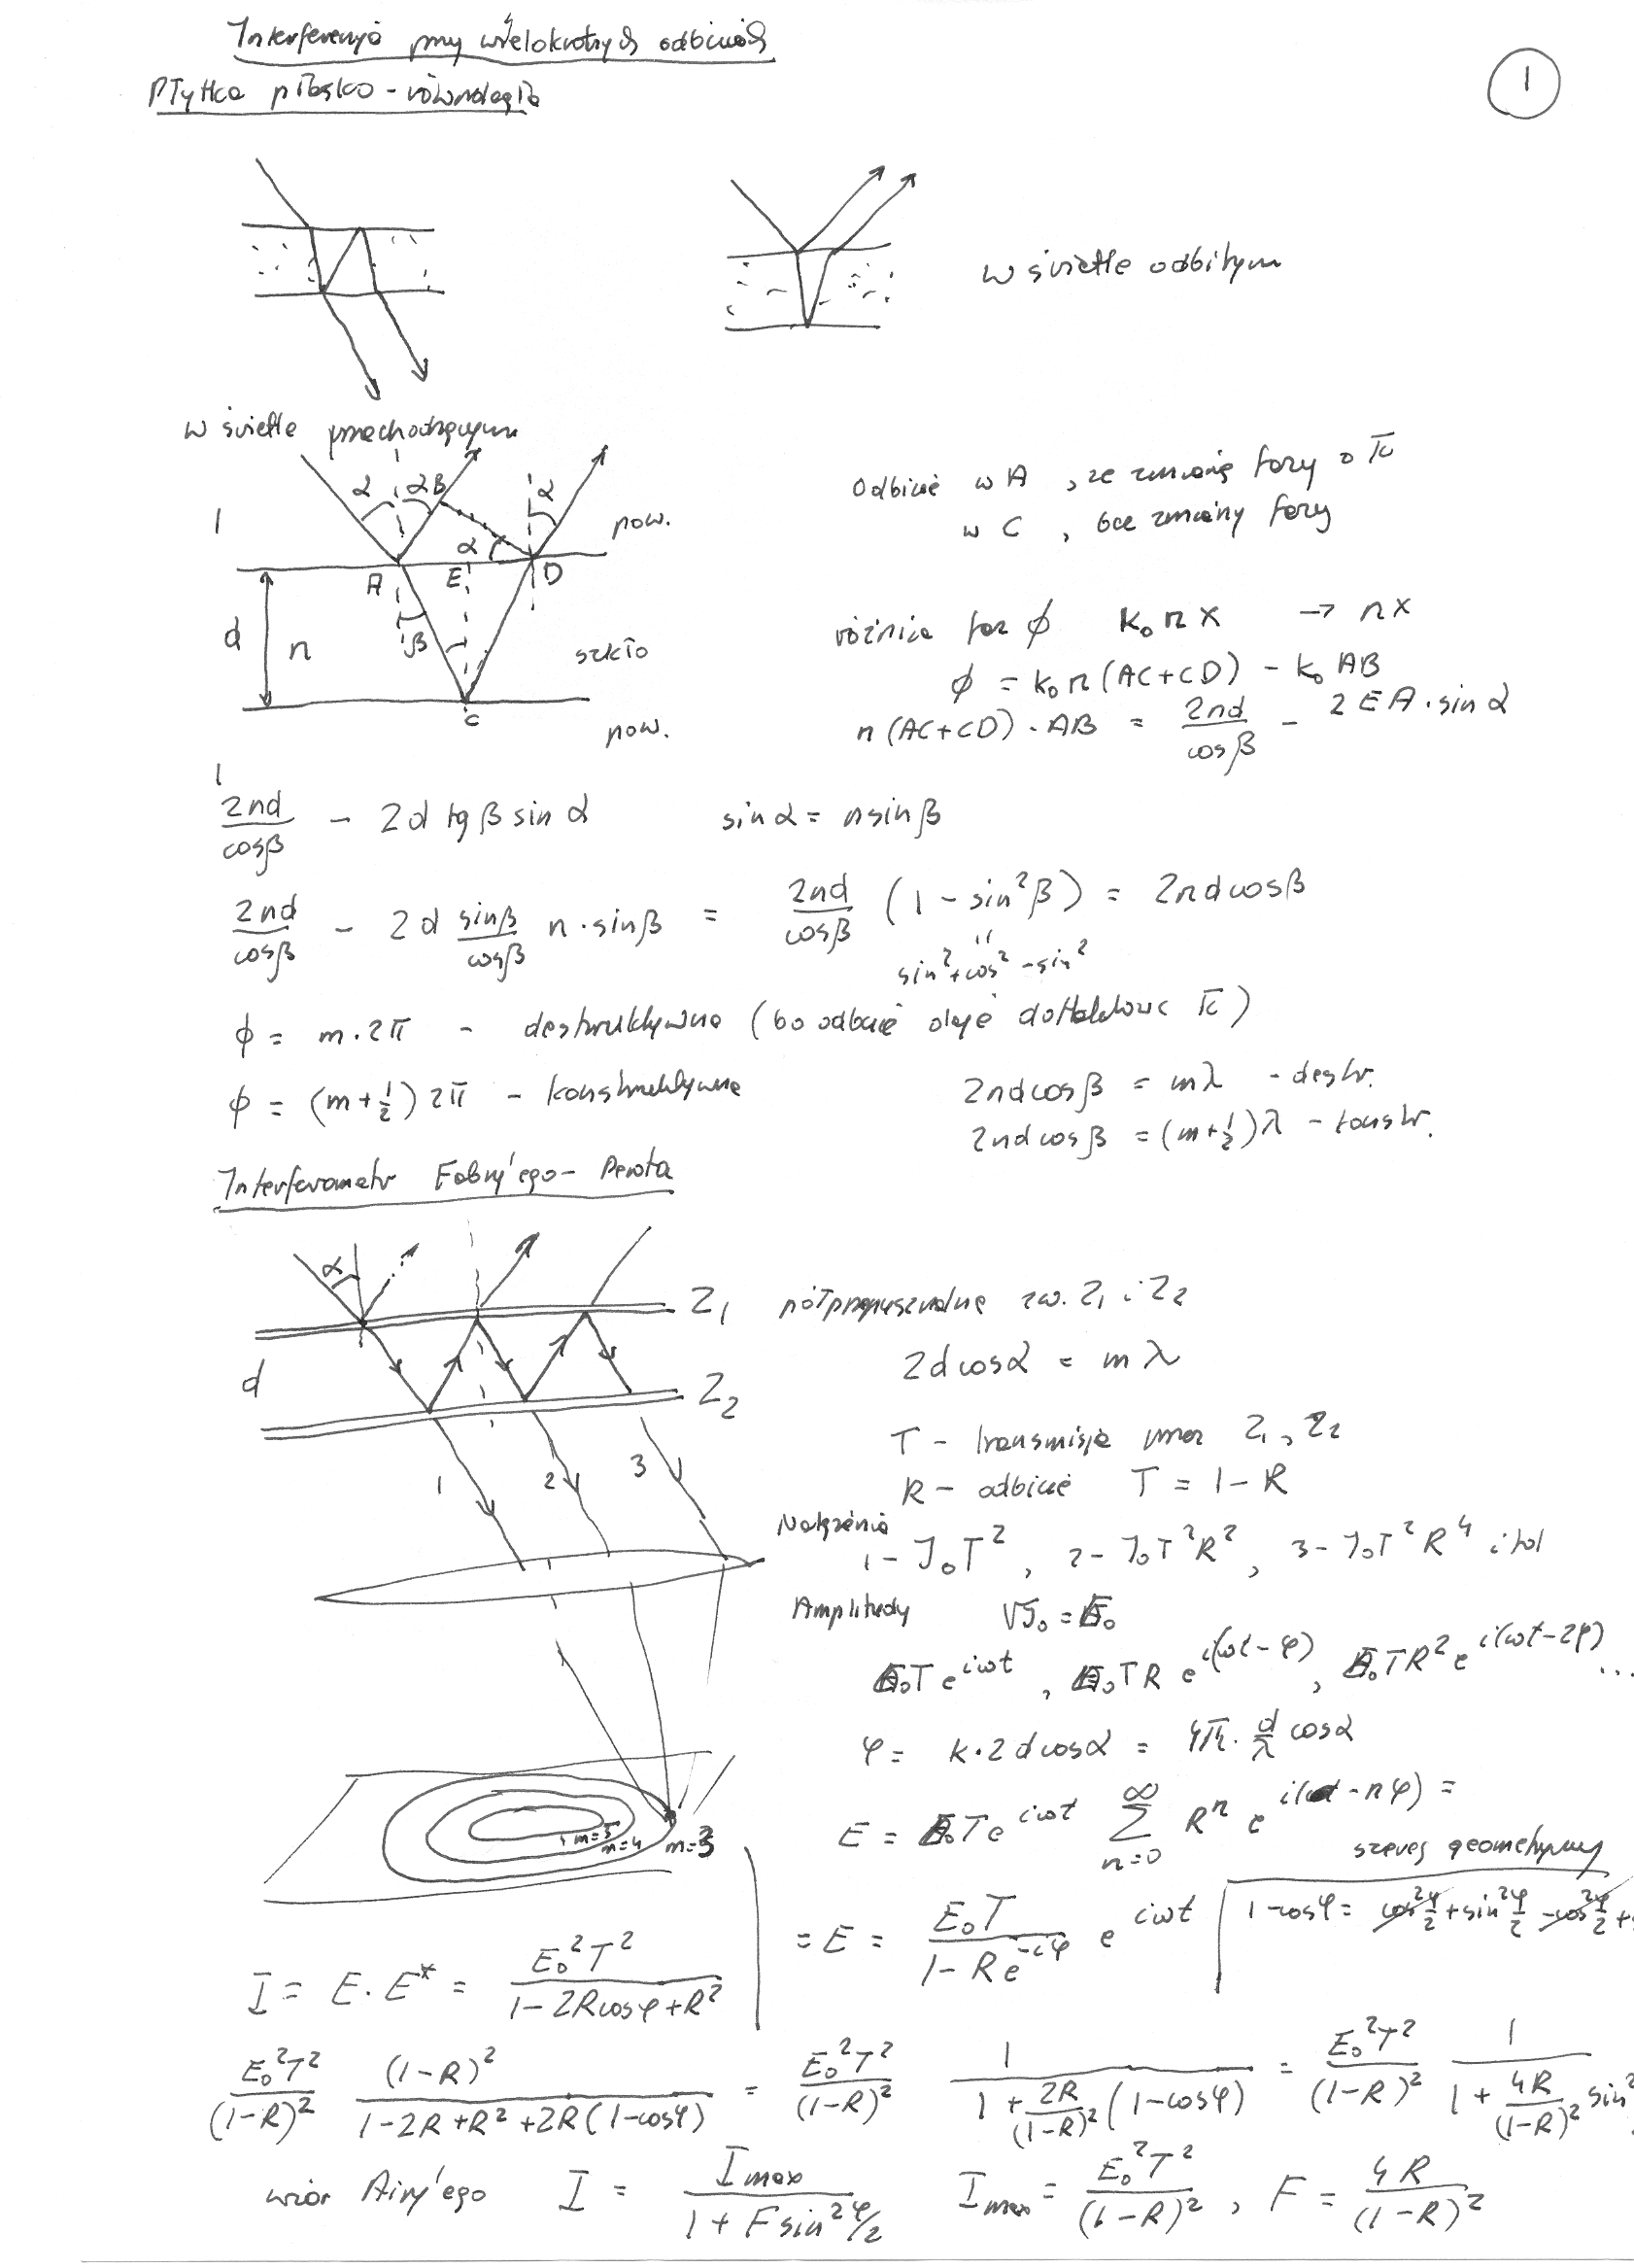 Interferencja przy wielokrotnych odbiciach
Płytka płasko-równoległa
1
w świetle odbitym
w świetle przechodzącym
α α B α
1 α pow.
A E D
d n β szkło
C
pow.
1
Odbicie w A, ze zmianą fazy o π
w C, bez zmiany fazy
różnica faz ϕ k₀nx → nx
ϕ = k₀n(AC+CD) - k₀AB
n(AC+CD) - AB = 2nd/cosβ - 2EA·sinα
2nd/cosβ - 2d tgβ sinα sinα = n sinβ
2nd/cosβ - 2d sinβ/cosβ n·sinβ = 2nd/cosβ (1 - sin²β) = 2nd cosβ
sin²+cos²-sin²
ϕ = m·2π - destruktywna (bo odbicie daje dodatkowe π)
ϕ = (m+½)2π - konstruktywna
2nd cosβ = mλ - destr.
2nd cosβ = (m+½)λ - konstr.
Interferometr Fabry'ego-Perota
α
Z₁
d
Z₂
1 2 3
półprzepuszczalne zw. Z₁ i Z₂
2d cosα = mλ
T - transmisja przez Z₁, Z₂
R - odbicie T = 1 - R
Natężenia
1 - J₀T², 2 - J₀T²R², 3 - J₀T²R⁴ itd
Amplitudy √J₀ = E₀
E₀T e^{iωt}, E₀TR e^{i(ωt-φ)}, E₀TR² e^{i(ωt-2φ)} ...
φ = k·2d cosα = 4π·d/λ cosα
E = E₀T e^{iωt} ∑_{n=0}^{∞} Rⁿ e^{i(ωt-nφ)} =
szereg geometryczny
m=5 m=4 m=3
= E = E₀T/(1 - Re^{-iφ}) e^{iωt}
1-cosφ = cos²φ/2 + sin²φ/2 - cos²φ/2 +
I = E·E* = E₀²T²/(1 - 2Rcosφ + R²)
E₀²T²/(1-R)² (1-R)²/(1-2R+R²+2R(1-cosφ)) = E₀²T²/(1-R)² 1/(1 + 2R/(1-R)² (1-cosφ)) = E₀²T²/(1-R)² 1/(1 + 4R/(1-R)² sin²
wzór Airy'ego I = Imax/(1 + F sin²φ/2) Imax = E₀²T²/(1-R)², F = 4R/(1-R)²